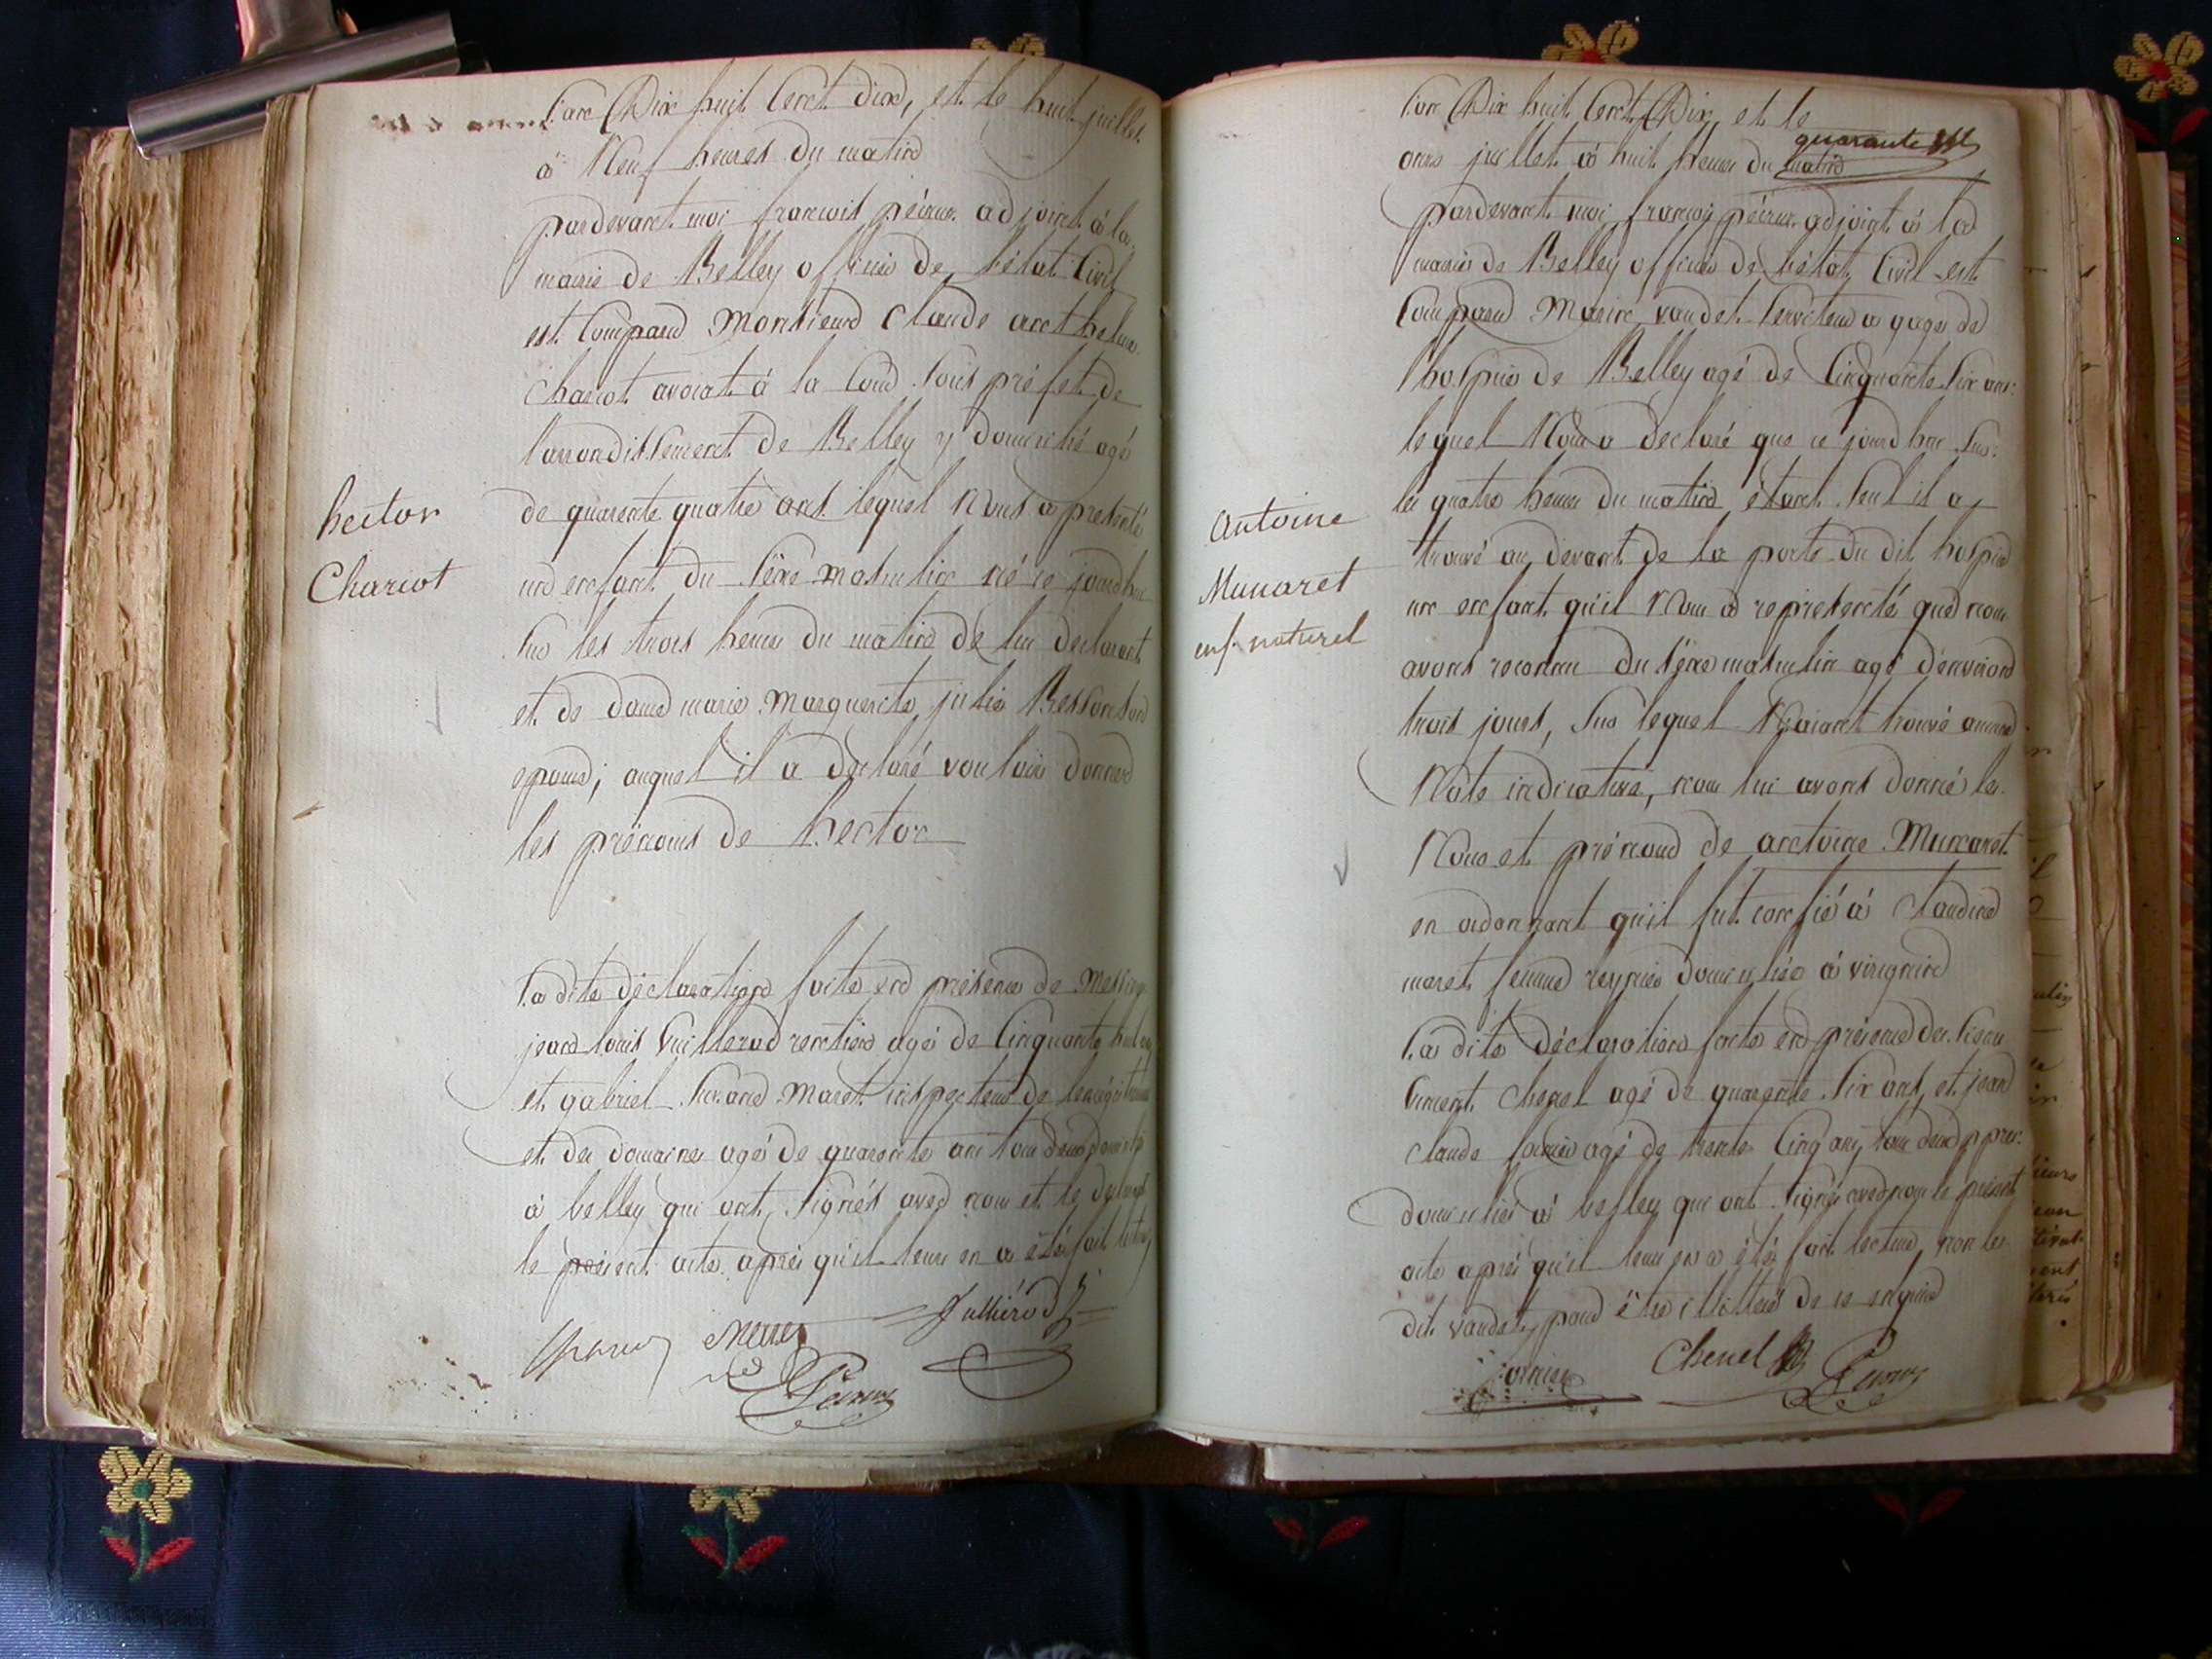 L'an Dix huit Cent dix, et le huit juillet
à Neuf heures du matin
pardevant moi francois péirus adjoint à la
mairie de Belley officier de l'état Civil
est Comparu Monsieur Claude anthelme
Chariot avocat à la Cour sous préfet de
l'arrondissement de Belley y domicilié agé
hector
Chariot
de quarente quatre ans lequel Nous a presenté
un enfant du sèxe masculin né ce jourdhui
sur les trois heures du matin de lui declarant
et de dame marie Marguerite julie Besson son
epouse; auquel il a declaré vouloir donner
les prénoms de hector
La dite déclaration faite en présence de Messieurs
jean louis Vuillerod rentier agé de Cinquante huit ans
et gabriel Maret inspecteur de l'enregistrement
et des domaines agé de quarente ans tous deux domiciliés
à belley qui ont signés avec nous et le declarant
le présent acte après qu'il leurs en a été fait lecture
L'an Dix huit Cent Dix et le
quarante
onze juillet à huit heures du matin
pardevant moi françois péirus adjoint à la
mairie de Belley officier de l'état Civil est
Comparu vaudet serviteur a gages de
l'hospice de Belley agé de Cinquante six ans
lequel Nous a declaré que ce jourd'hui sur
les quatre heures du matin étant seul il a
Antoine
Munaret
enf. naturel
trouvé au devant de la porte du dit hospice
un enfant qu'il Nous a representé que nous
avons reconnu du sèxe masculin agé d'environ
trois jours, sur lequel N'aiant trouvé aucune
Note indicative, nous lui avons donné les
Nom et prénom de antoine Munaret
en ordonnant qu'il fut confié à Claudine
maret femme reynier domiciliée à virignin
La dite déclaration faite en présence des sieurs
Vincent Chenel agé de quarente six ans, et jean
claude agé de trente Cinq ans, tous deux
domiciliés à belley qui ont signé avec nous le présent
acte après qu'il leurs en a été fait lecture, non le
dit vaudet, pour être illitéré de ce enquis
Chenel